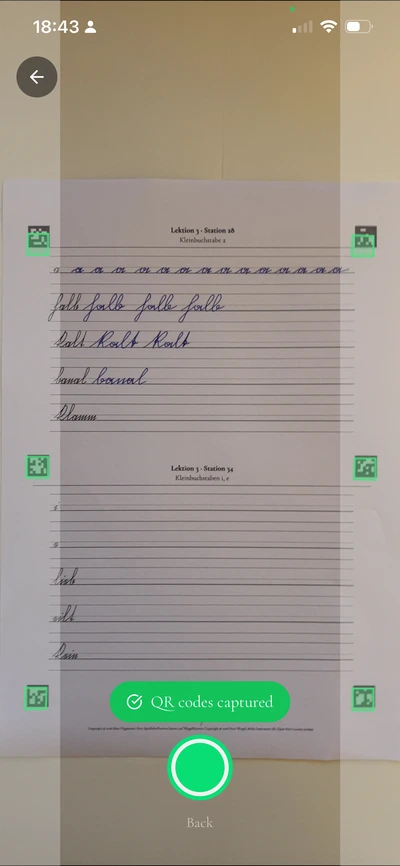 18:43
Lektion 3 · Station 28
Kleinbuchstabe a
a a a a a a a a a a a a a a
falb falb falb falb
Kalt Kalt Kalt
banal banal
Klamm
Lektion 3 · Station 34
Kleinbuchstaben i, e
i
e
lieb
eilt
Kein
QR codes captured
Back